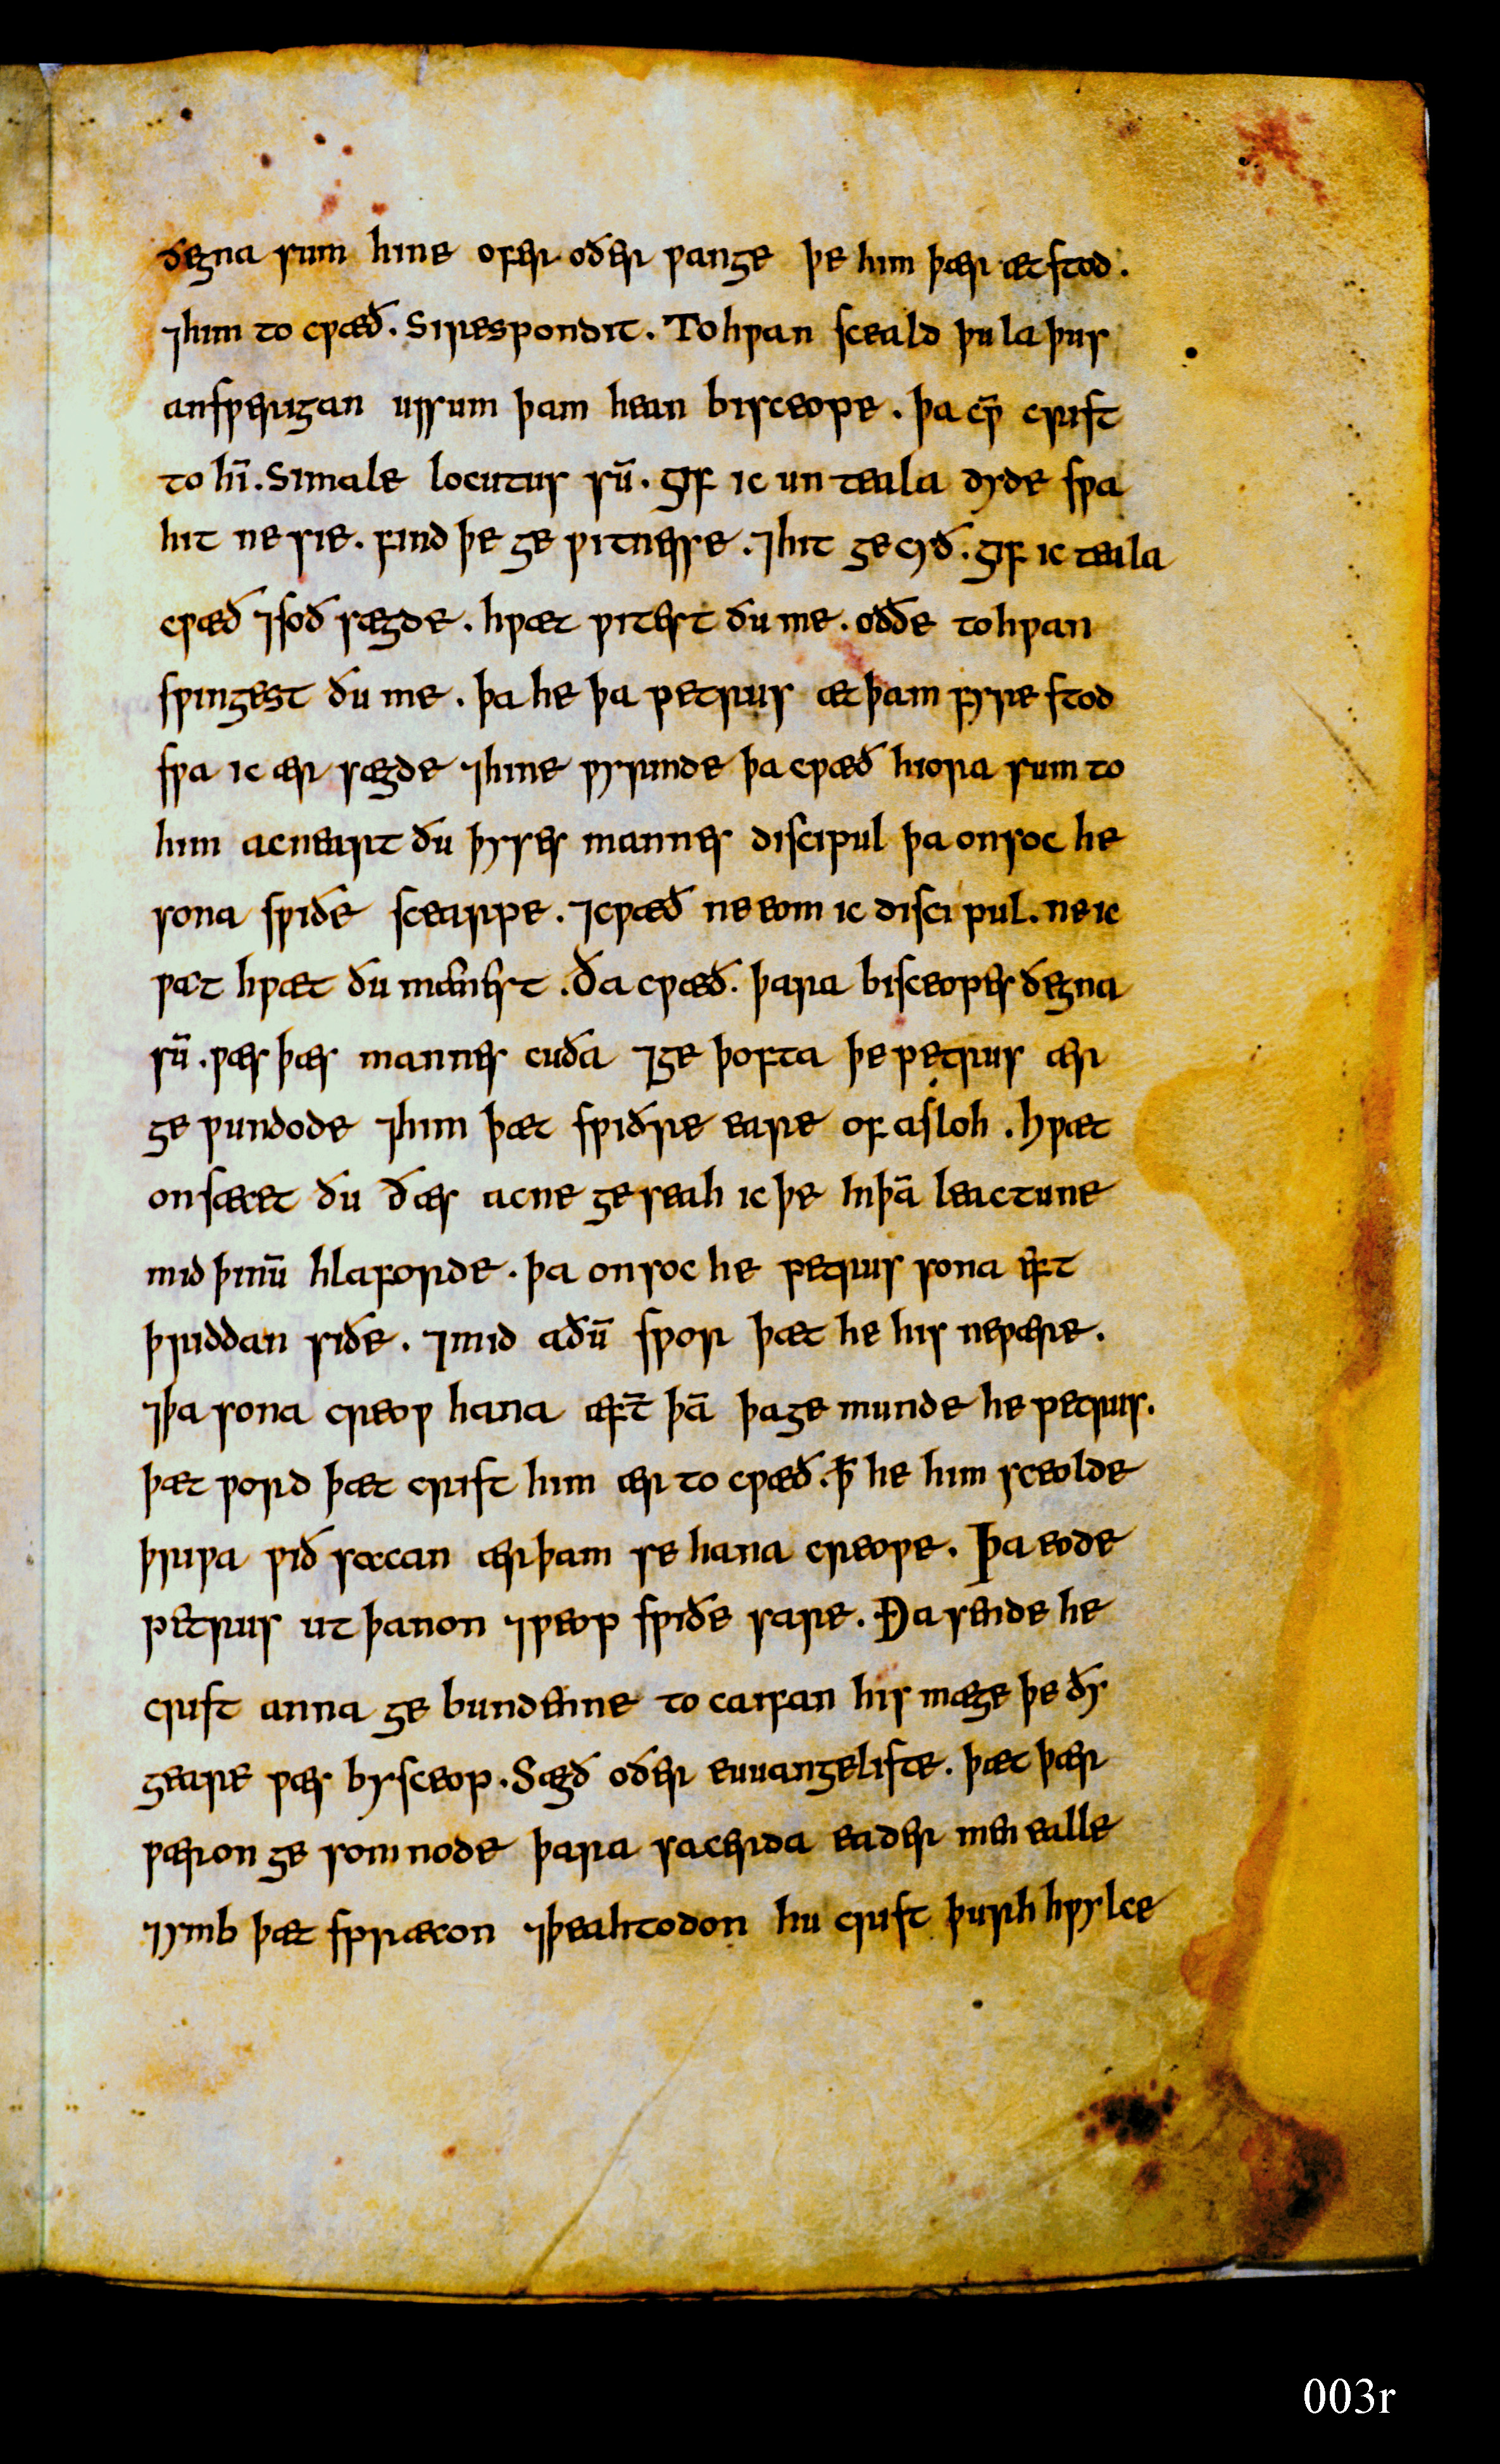 ðegna sum hine ofer oðer ƿange þe him þær ætstod.
⁊him to cƿæð. Si respondit. To hƿan sceald þu la þus
ansƿerigan ussum þam hean bisceope. þa cƿ̄ crist
to hī. Si male locutus sū. gif ic un teala dyde sƿa
hit ne sie. sind þe ge ƿitnesse. ⁊hit ge cyð. gif ic teala
cƿæð ⁊soð sægde. hƿæt ƿitest ðu me. oððe to hƿan
sƿingest ðu me. þa he þa petrus æt þam fyre stod
sƿa ic ær sægde ⁊hine ƿyrmde þa cƿæð hiora sum to
him ac neart ðu þyses mannes discipul þa onsoc he
sona sƿiðe scearpe. ⁊cƿæð ne eom ic disci pul. ne ic
ƿat hƿæt ðu mænest. Ða cƿæð. þara bisceopes ðegna
sū. ƿæs þæs mannes cuða ⁊ge þofta þe petrus ær
ge ƿundode ⁊him þæt sƿiðre eare of asloh. Hƿæt
onsæcet ðu ðæs ac ne geseah ic þe inþā leactune
mid þinū hlaforde. þa onsoc he petrus sona eft
þriddan siðe. ⁊mid aðū sƿor þæt he his neƿære.
⁊þa sona creoƿ hana æft̄ þā þage munde he petrus.
þæt ƿord þæt crist him ær to cƿæð. ꝥ he him sceolde
þriƿa ƿið sacan ær þam se hana creoƿe. Þa eode
petrus ut þanon ⁊ƿeop sƿiðe sare. Ða sende he
crist anna ge bundenne to caifan his mæge þe ðy
geare ƿæs bysceop. Sægð oðer euuangeliste. þæt þær
ƿæron ge somnode þara sacerda eader men ealle
⁊ymb þæt spræcon ⁊þeahtodon hu crist þurh hƿylce
003r